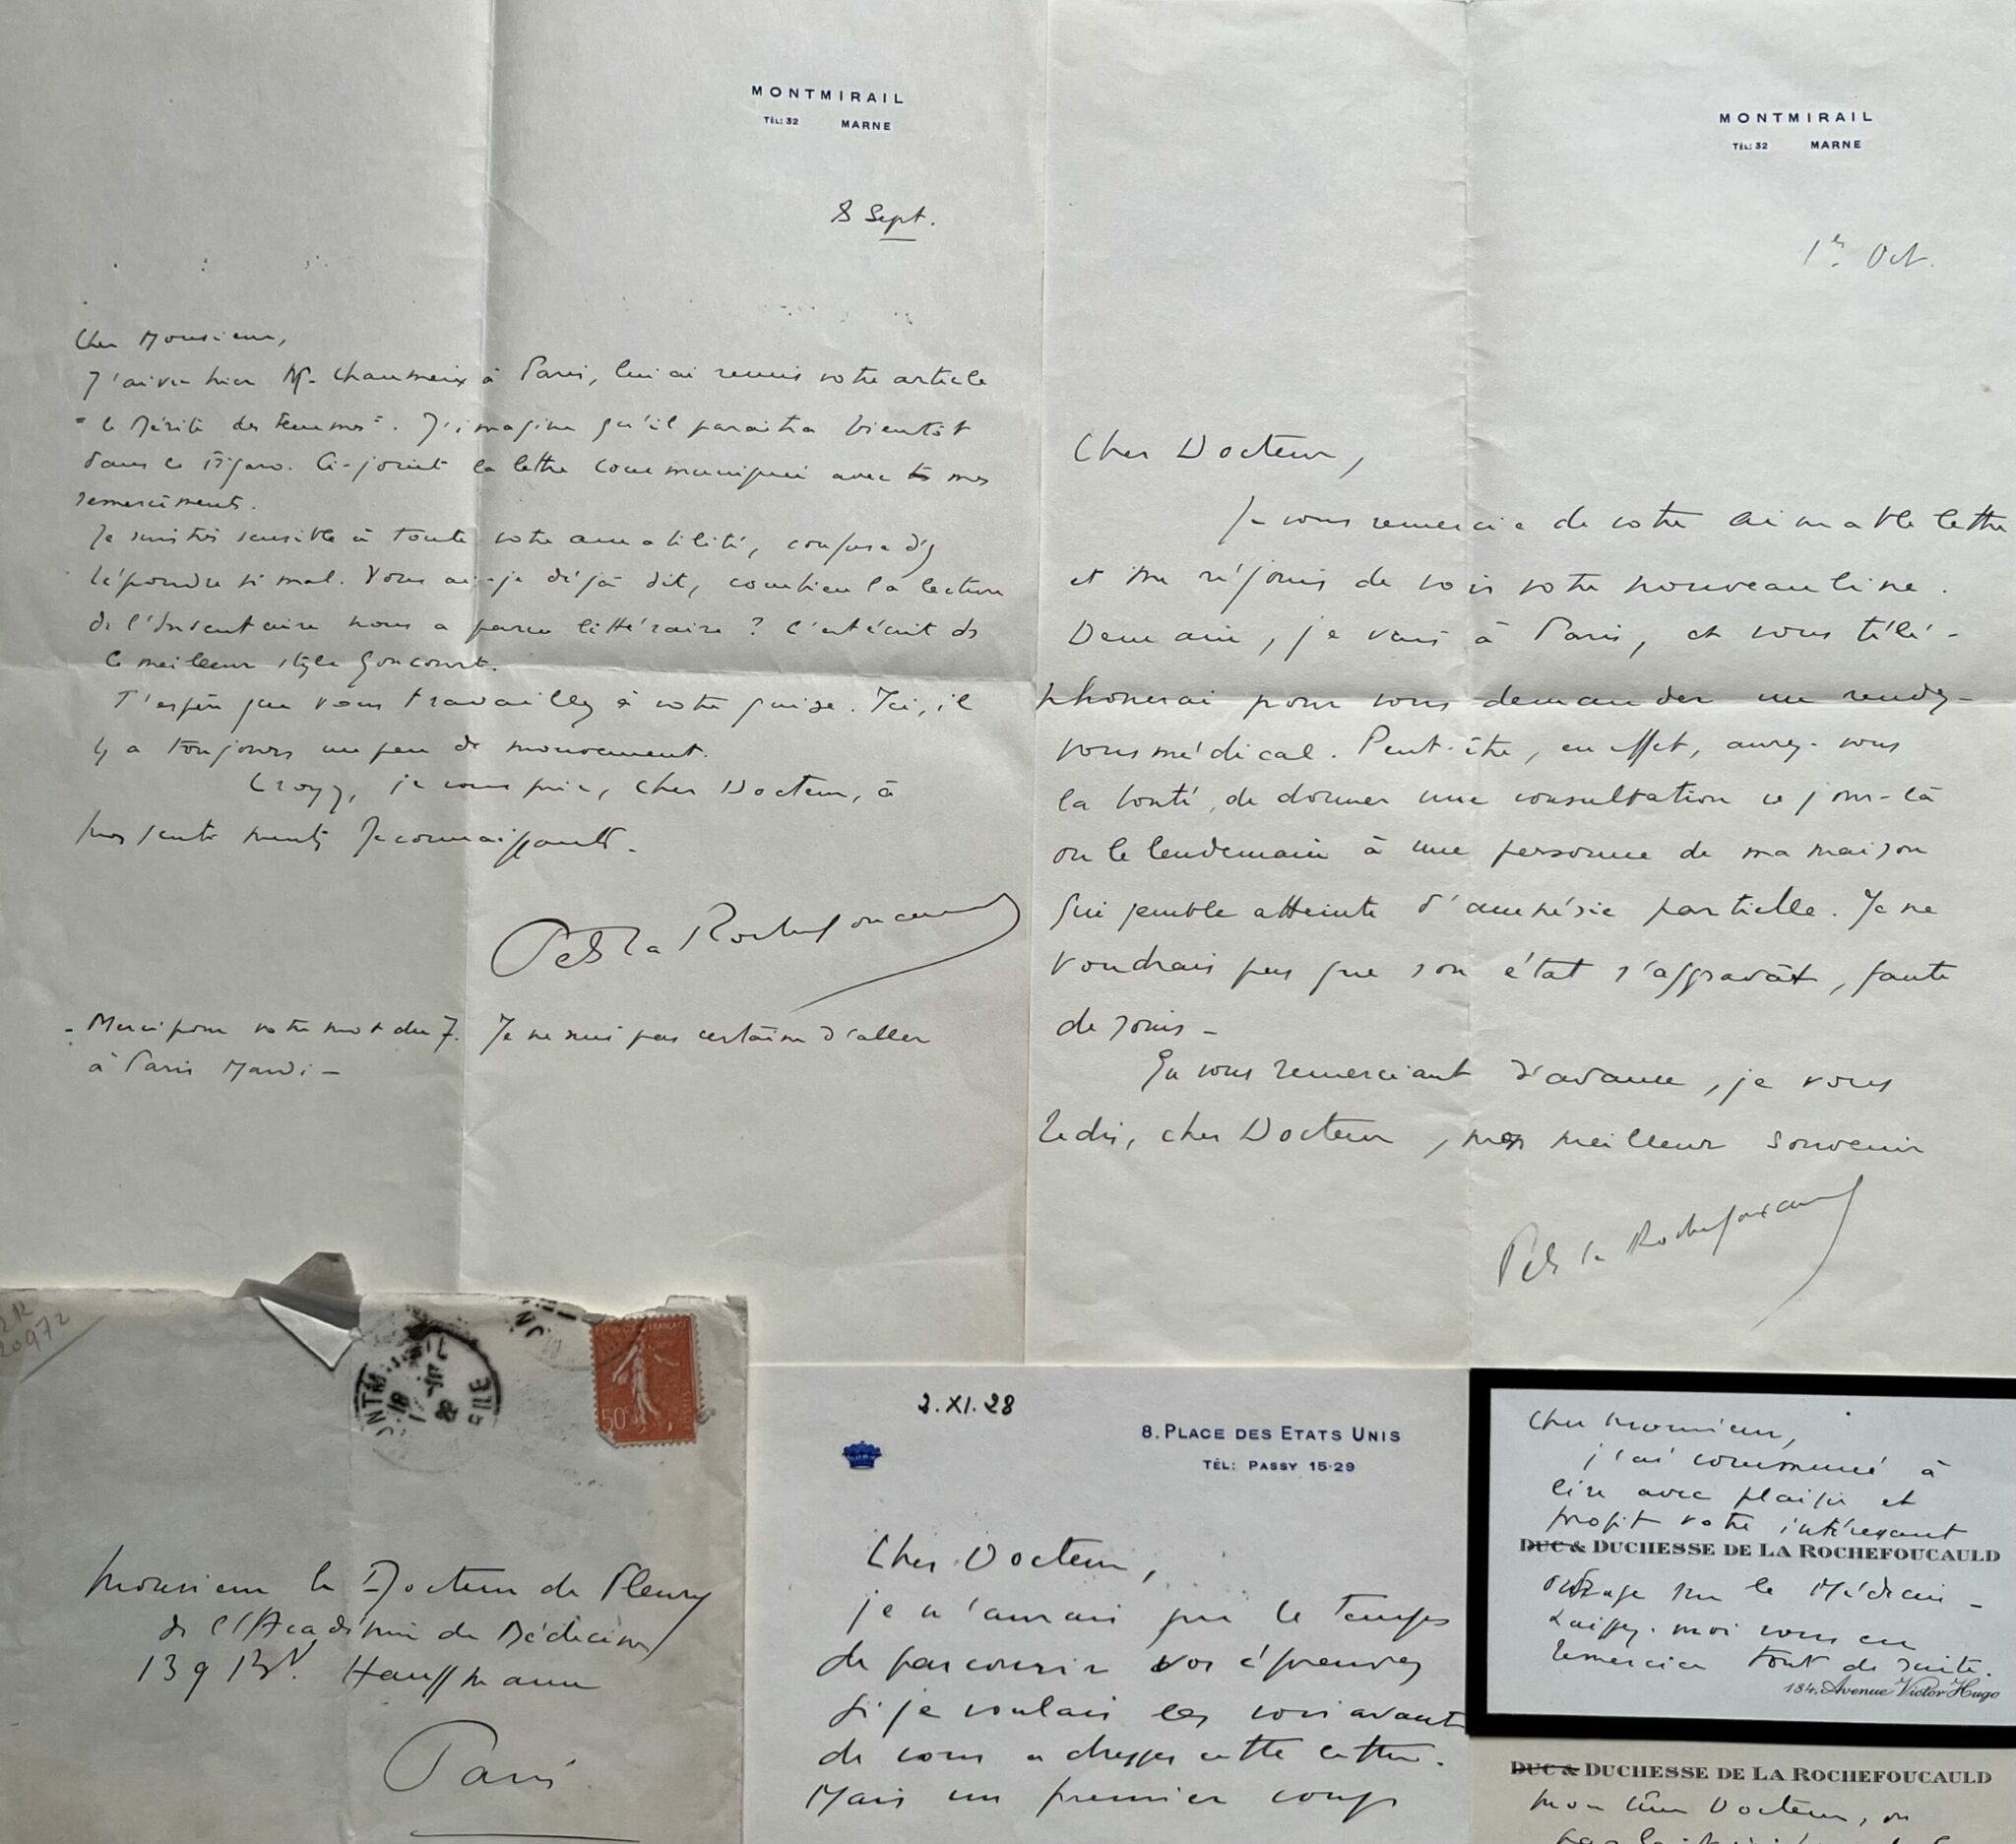 MONTMIRAIL
TÉL: 32 MARNE
8 Sept.
Cher Monsieur,
J'ai vu hier M. Chaumeix à Paris, lui ai remis votre article
"le Mérite des femmes". J'imagine qu'il paraîtra bientôt
dans le Figaro. Ci-joint la lettre communiquée avec mes
remerciements.
Je suis très sensible à toute votre amabilité, confuse d'y
répondre si mal. Vous ai-je déjà dit, combien la lecture
de l'Inventaire nous a paru littéraire ? C'est écrit ds
le meilleur style Goncourt.
J'espère que vous travaillez à votre guise. Ici, il
y a toujours un peu de mouvement.
Croyez, je vous prie, cher Docteur, à
mes sentiments reconnaissants.
P de la Rochefoucauld
- Merci pour votre mot du 7. Je ne suis pas certaine d'aller
à Paris Mardi -
MONTMIRAIL
TÉL: 32 MARNE
1er Oct.
Cher Docteur,
Je vous remercie de votre aimable lettre
et me réjouis de voir votre nouveau livre.
Demain, je vais à Paris, et vous télé-
phonerai pour vous demander un rendez-
vous médical. Peut-être, en effet, aurez-vous
la bonté, de donner une consultation ce jour-là
ou le lendemain à une personne de ma maison
qui semble atteinte d'amnésie partielle. Je ne
voudrais pas que son état s'aggravât, faute
de soins -
En vous remerciant d'avance, je vous
redis, cher Docteur, mon meilleur souvenir
P de la Rochefoucauld
20972
50c
Monsieur le Docteur de Fleury
de l'Académie de Médecine
139 Bd. Haussmann
Paris
2.XI.28
8. PLACE DES ETATS UNIS
TÉL: PASSY 15-29
Cher Docteur,
je n'aurais pas le temps
de parcourir vos épreuves
si je voulais les voir avant
de vous adresser cette lettre.
Mais un premier coup
Cher Monsieur,
j'ai commencé à
lire avec plaisir et
profit votre intéressant
DUC & DUCHESSE DE LA ROCHEFOUCAULD
ouvrage sur le Médecin -
Laissez-moi vous en
remercier tout de suite.
184, Avenue Victor Hugo
DUC & DUCHESSE DE LA ROCHEFOUCAULD
Mon cher Docteur, on